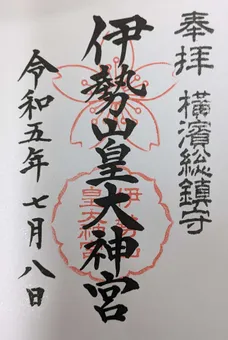 奉拝 横濱総鎮守
伊勢山皇大神宮
令和五年七月八日
伊勢山
皇大神宮